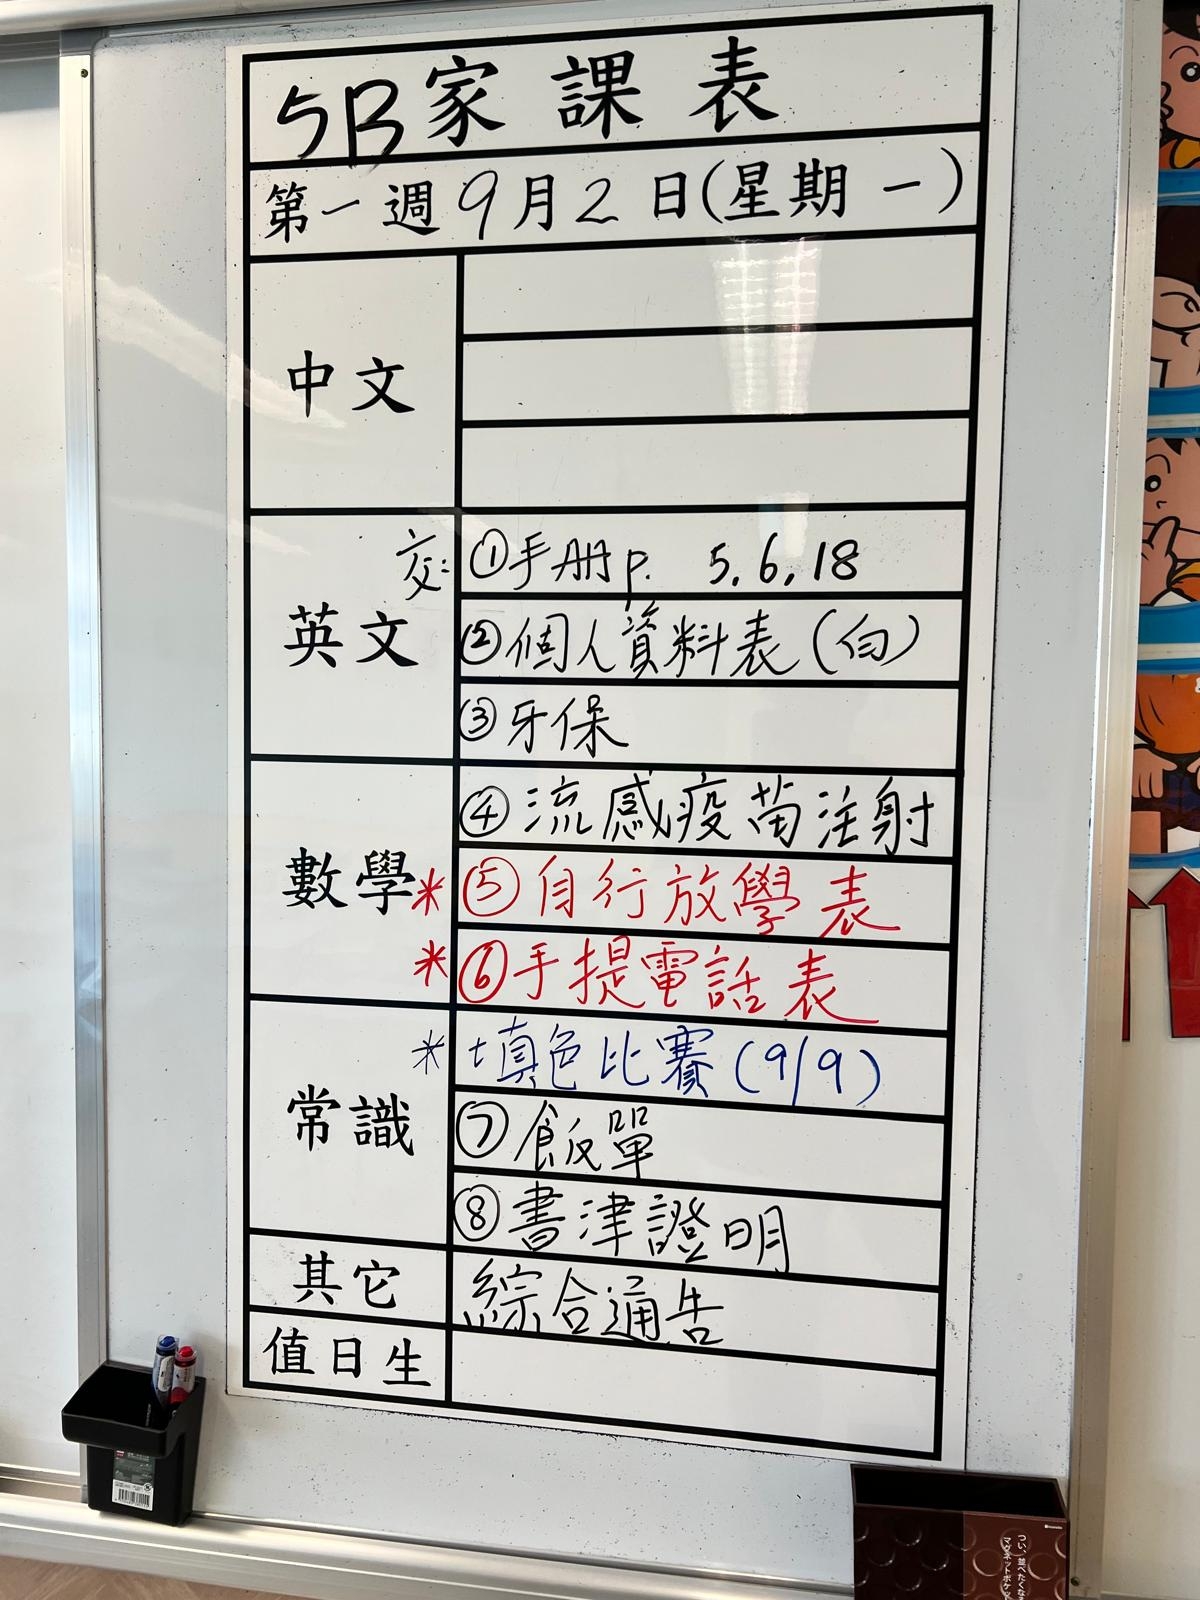 5B家課表
第一週9月2日(星期一)
中文
英文
交:①手冊p. 5,6,18
②個人資料表(白)
③牙保
數學
④流感疫苗注射
*⑤自行放學表
*⑥手提電話表
常識
*填色比賽(9/9)
⑦飯單
⑧書津證明
其它
綜合通告
值日生
つい、並べたくなる
マグネットポケット